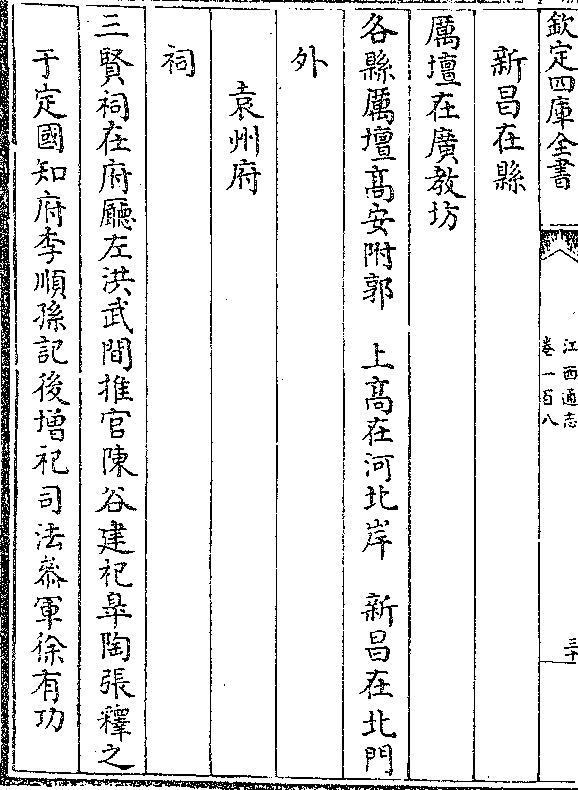 欽定四庫全書
江西通志
卷一百八
三十
新昌在縣
厲壇在廣教坊
各縣厲壇高安附郭　上高在河北岸　新昌在北門
外
袁州府
祠
三賢祠在府廳左洪武間推官陳谷建祀臯陶張釋之
于定國知府李順孫記後增祀司法叅軍徐有功